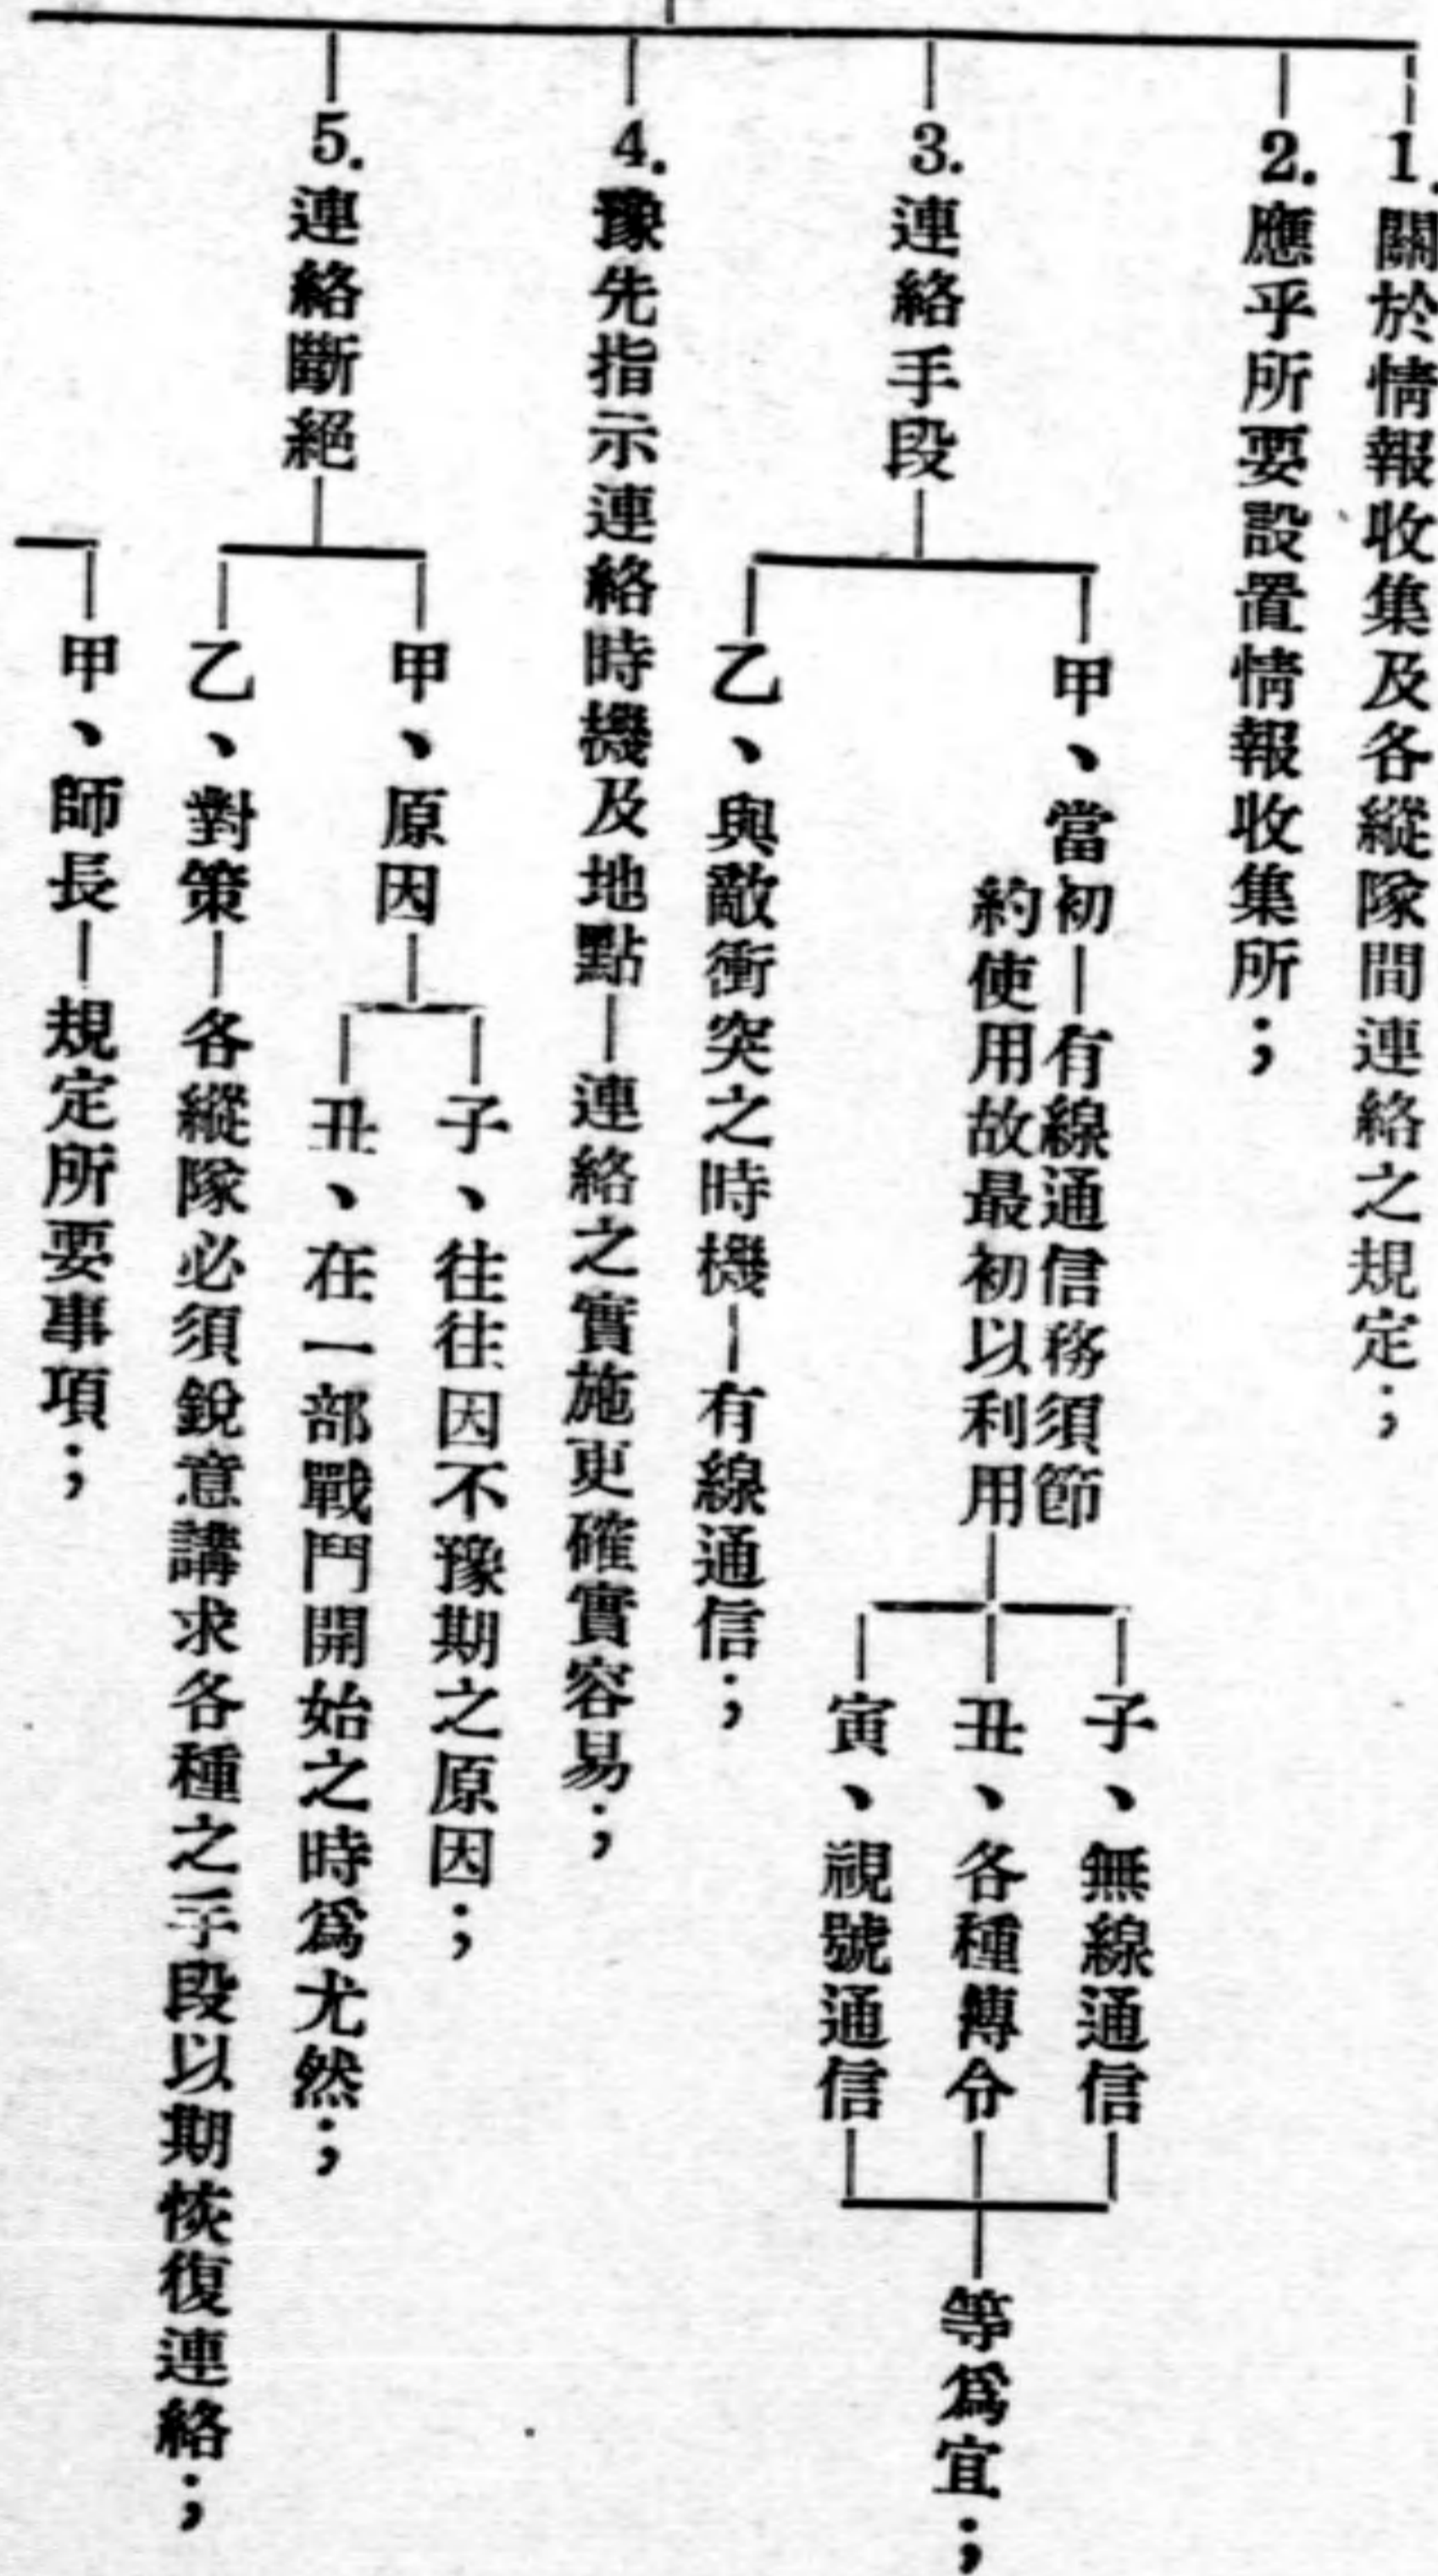 1.關於情報收集及各縱隊間連絡之規定；
2.應乎所要設置情報收集所；
3.連絡手段
甲、當初—有線通信務須節
約使用故最初以利用
子、無線通信
丑、各種傳令
寅、視號通信
等爲宜；
乙、與敵衝突之時機—有線通信；
4.豫先指示連絡時機及地點—連絡之實施更確實容易；
5.連絡斷絕
甲、原因
子、往往因不豫期之原因；
丑、在一部戰鬥開始之時爲尤然；
乙、對策—各縱隊必須銳意講求各種之手段以期恢復連絡；
甲、師長—規定所要事項；